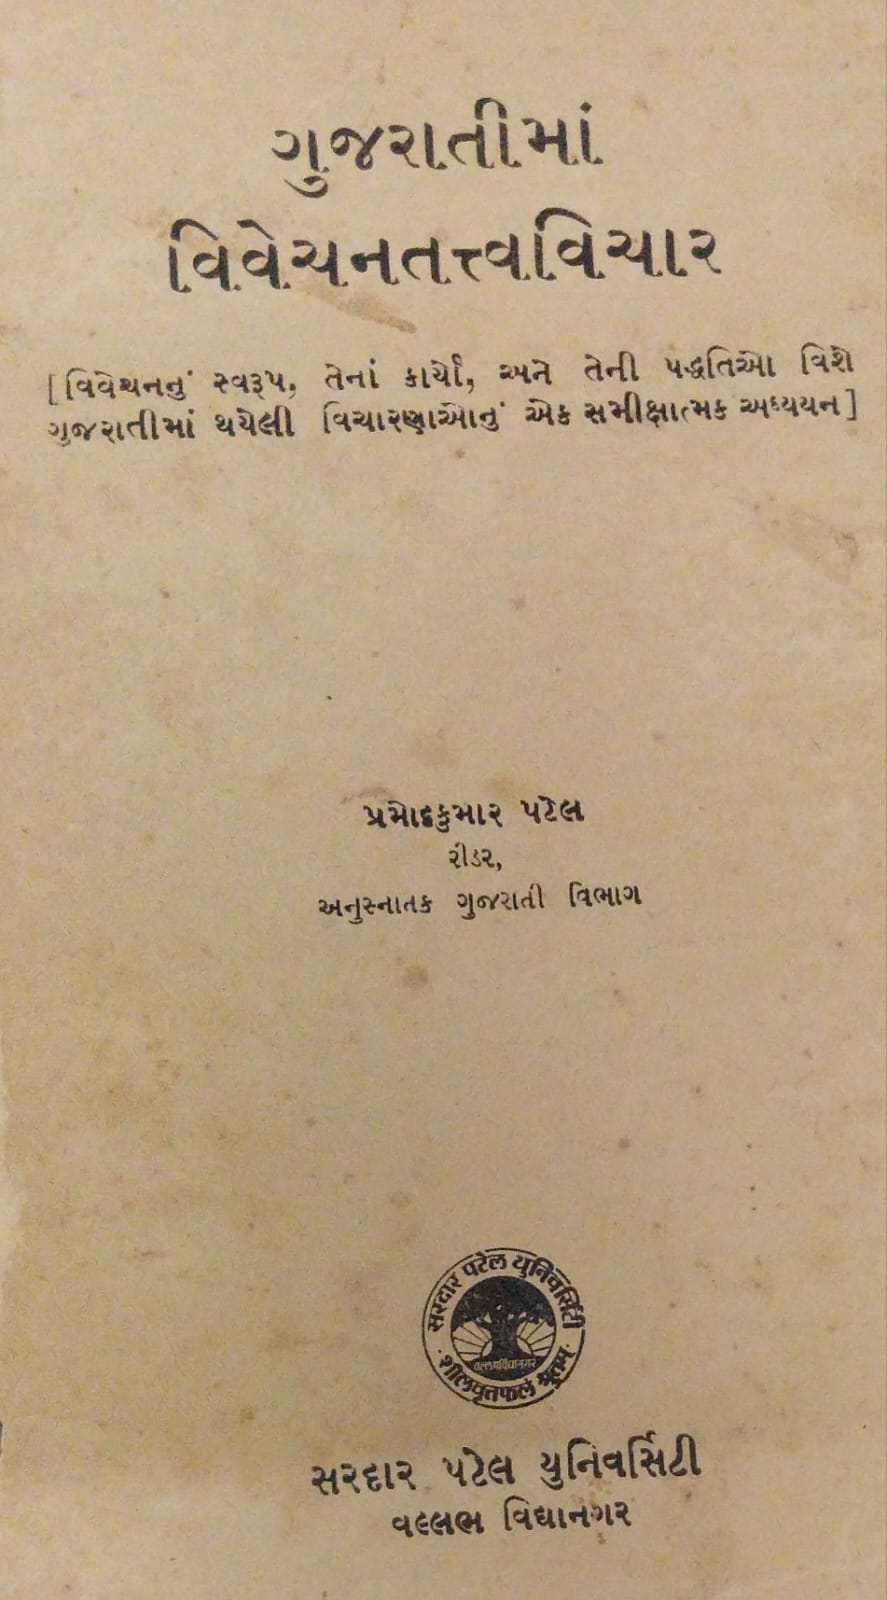 ગુજરાતીમાં
વિવેચનતત્ત્વવિચાર
[ વિવેચનનું સ્વરૂપ, તેનાં કાર્યો, અને તેની પદ્ધતિઓ વિશે
ગુજરાતીમાં થયેલી વિચારણાઓનું એક સમીક્ષાત્મક અધ્યયન ]
પ્રમોદકુમાર પટેલ
રીડર,
અનુસ્નાતક ગુજરાતી વિભાગ
સરદાર પટેલ યુનિવર્સિટી
વલ્લભવિદ્યાનગર
શીલવૃત્તફલં શ્રુતમ્
સરદાર પટેલ યુનિવર્સિટી
વલ્લભ વિદ્યાનગર